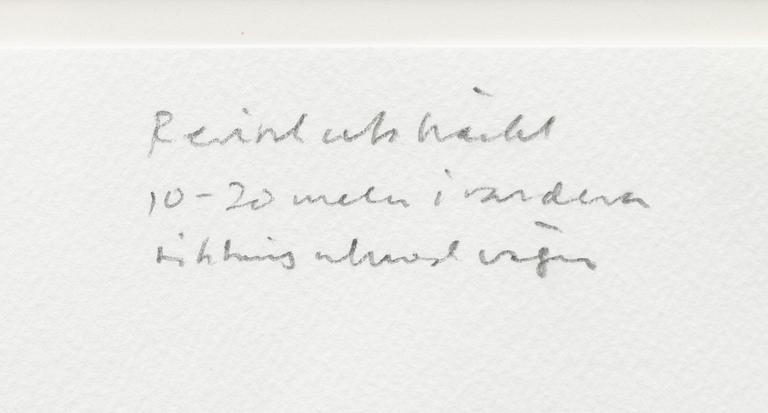 Reviret utsträckt
10-20 meter i vardera
riktning utmed vägen